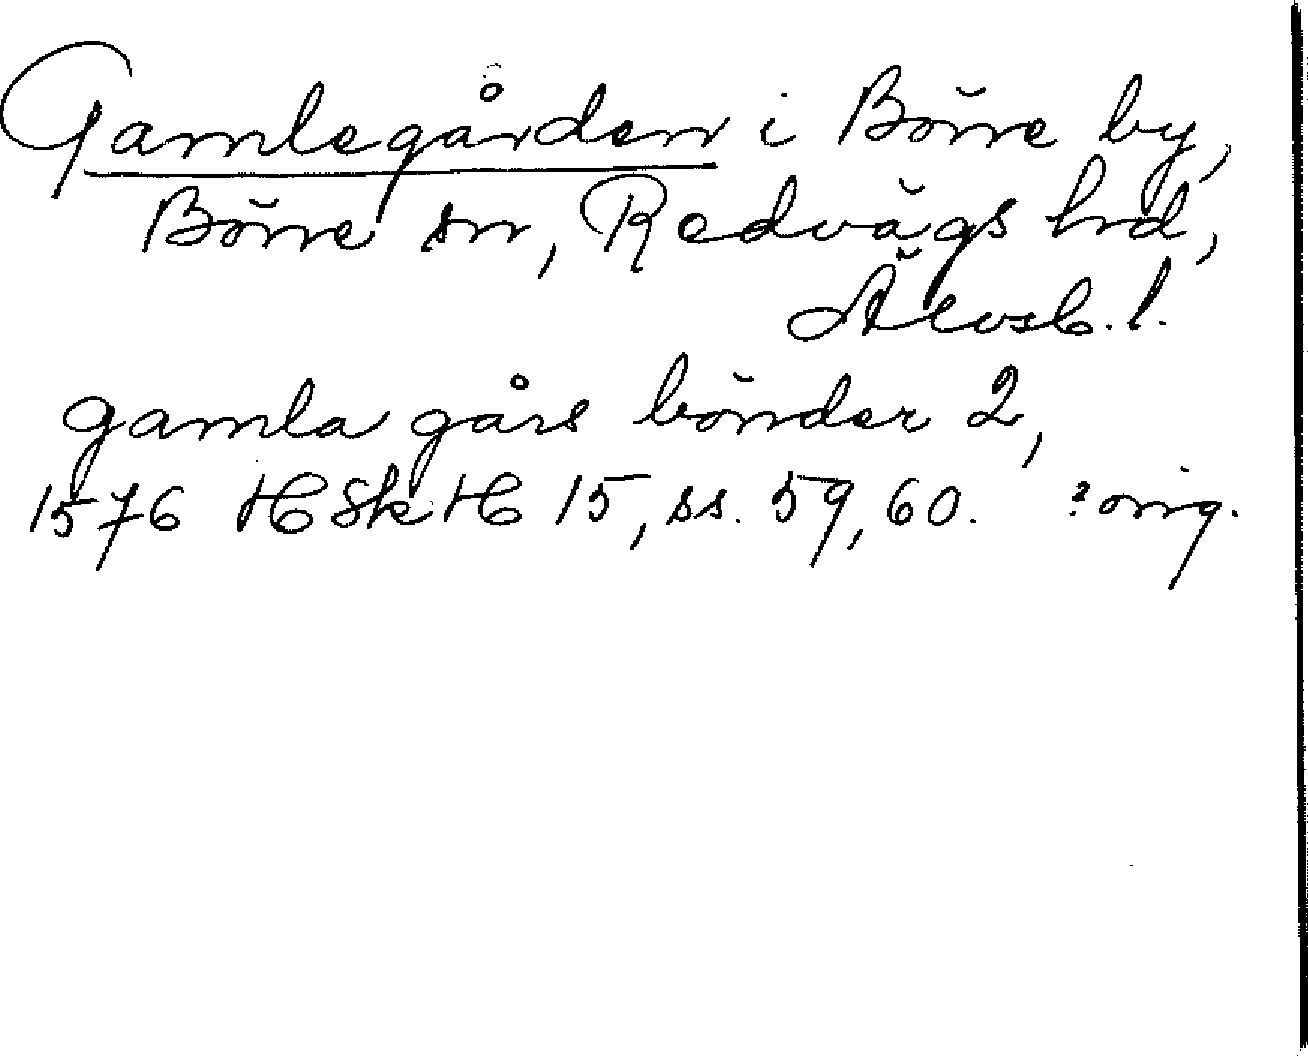 Gamlegården i Bönne by,
Bönne sn, Redvägs hrd,
Älvsb. l.
gamla gårs bönder 2,
1576 HSkH 15, ss. 59, 60. ? orig.